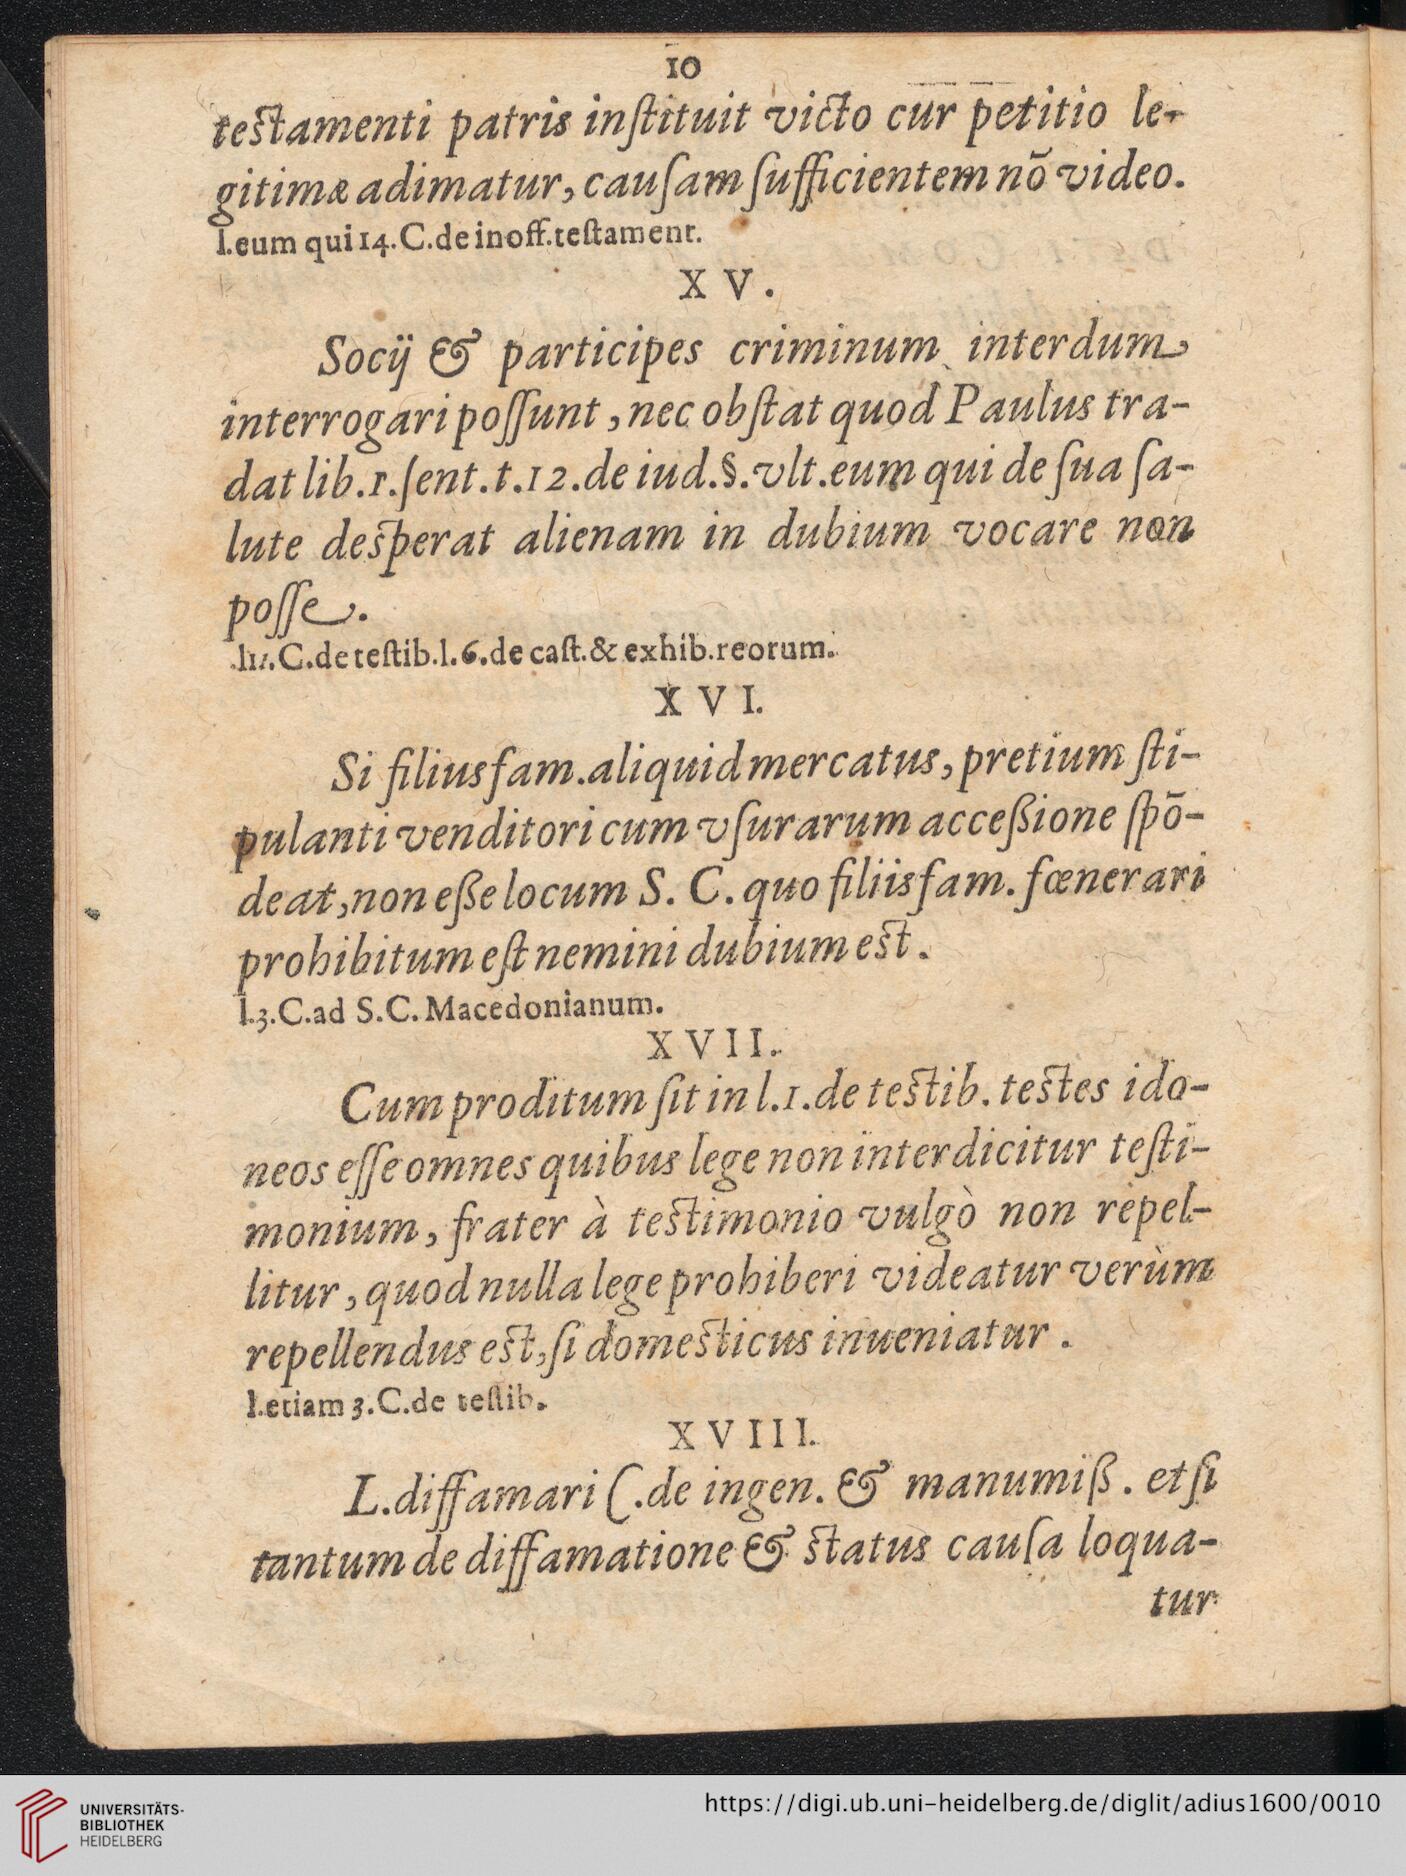 10
testamenti patris inſtituit victo cur petitio le-
gitimæ adimatur, cauſam ſufficientem nõ video.
l.eum qui 14. C. de inoff. teſtament.
X V.
Socij & participes criminum interdum
interrogari poſſunt, nec obſtat quod Paulus tra-
dat lib. 1. ſent. t. 12. de iud. §. vlt. eum qui de ſua ſa-
lute desperat alienam in dubium vocare non
poſſe.
C. de teſtib. l. 6. de caſt. & exhib. reorum.
X V I.
Si filiusfam. aliquid mercatus, pretium ſti-
pulanti venditori cum vſurarum acceßione ſpõ-
deat, non eße locum S. C. quo filiisfam. fœnerari
prohibitum eſt nemini dubium est.
l. 3. C. ad S. C. Macedonianum.
X V I I.
Cum proditum ſit in l. 1. de testib. testes ido-
neos eſſe omnes quibus lege non interdicitur teſti-
monium, frater à testimonio vulgò non repel-
litur, quod nulla lege prohiberi videatur verùm
repellendus est, ſi domesticus inueniatur.
l. etiam 3. C. de teſtib.
X V I I I.
L. diffamari C. de ingen. & manumiß. et ſi
tantum de diffamatione & status cauſa loqua-
tur
UNIVERSITÄTS-
BIBLIOTHEK
HEIDELBERG
https://digi.ub.uni-heidelberg.de/diglit/adius1600/0010